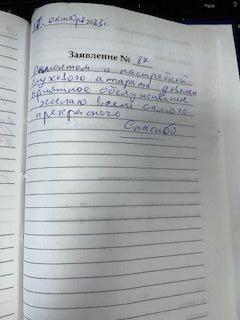 октября 2023 г.
Заявление № 87
ремонтом и настройкой
слухового апарата доволен
приятное обслуживание
желаю всем самого
прекрасного
Спасибо